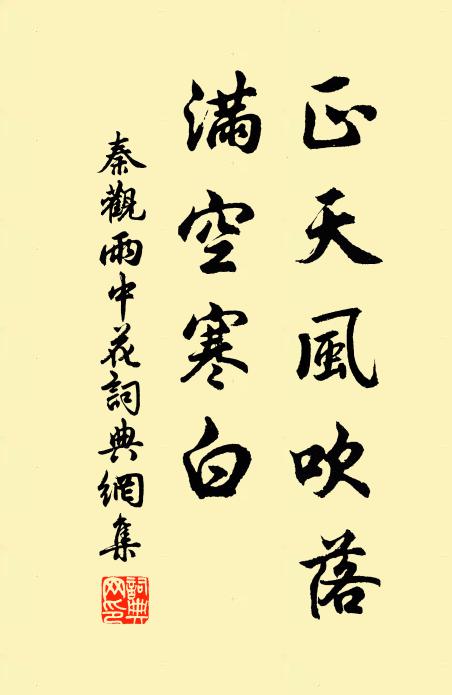 正天風吹落
滿空寒白
秦觀雨中花詞典網集